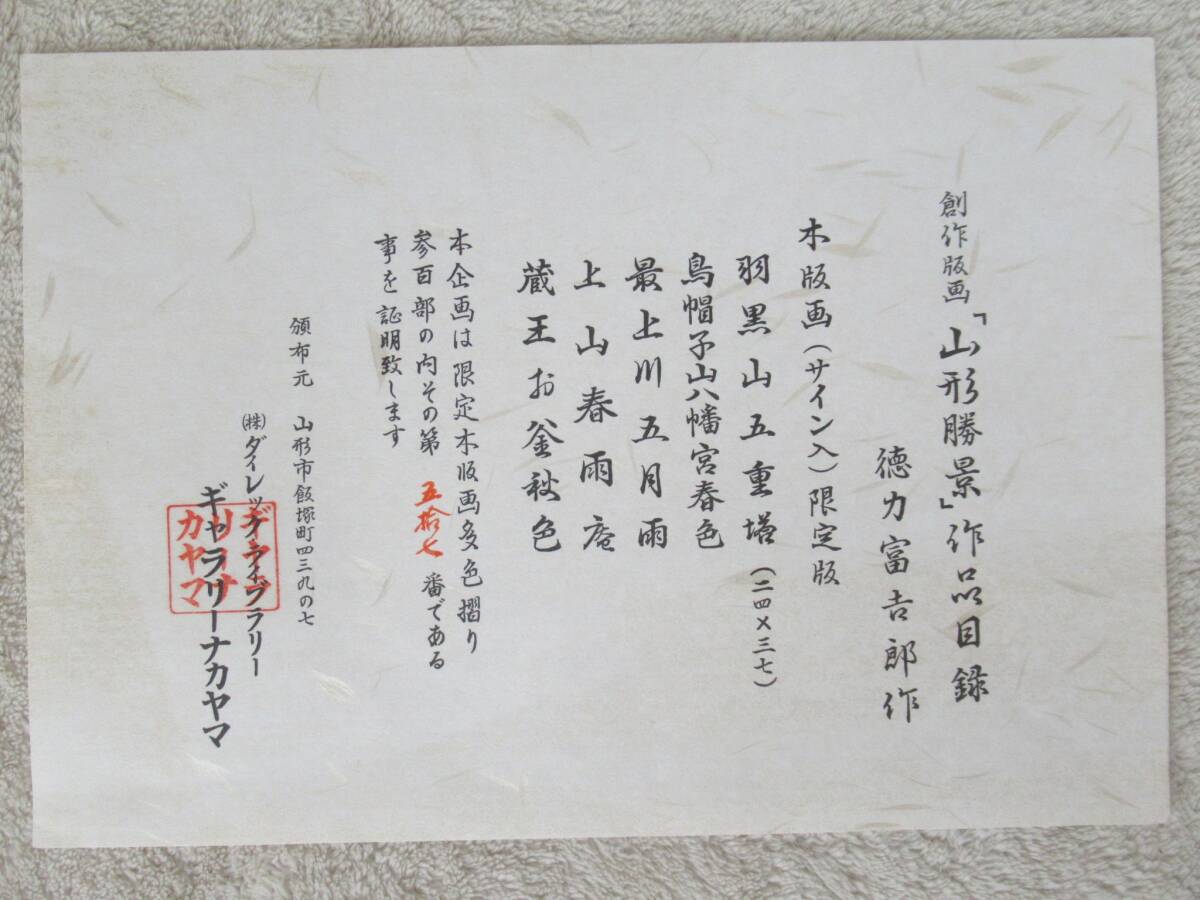 創作版画「山形勝景」作品目録
徳力富吉郎作
木版画(サイン入)限定版
羽黒山五重塔(二四×三七)
烏帽子山八幡宮春色
最上川五月雨
上山春雨庵
蔵王お釜秋色
本企画は限定木版画多色摺り
参百部の内その第 五拾七 番である
事を証明致します
頒布元 山形市飯塚町四三九の七
㈱ダイレックライブラリー
ギャラリーナカヤマ
ギャラ
リーナ
カヤマ